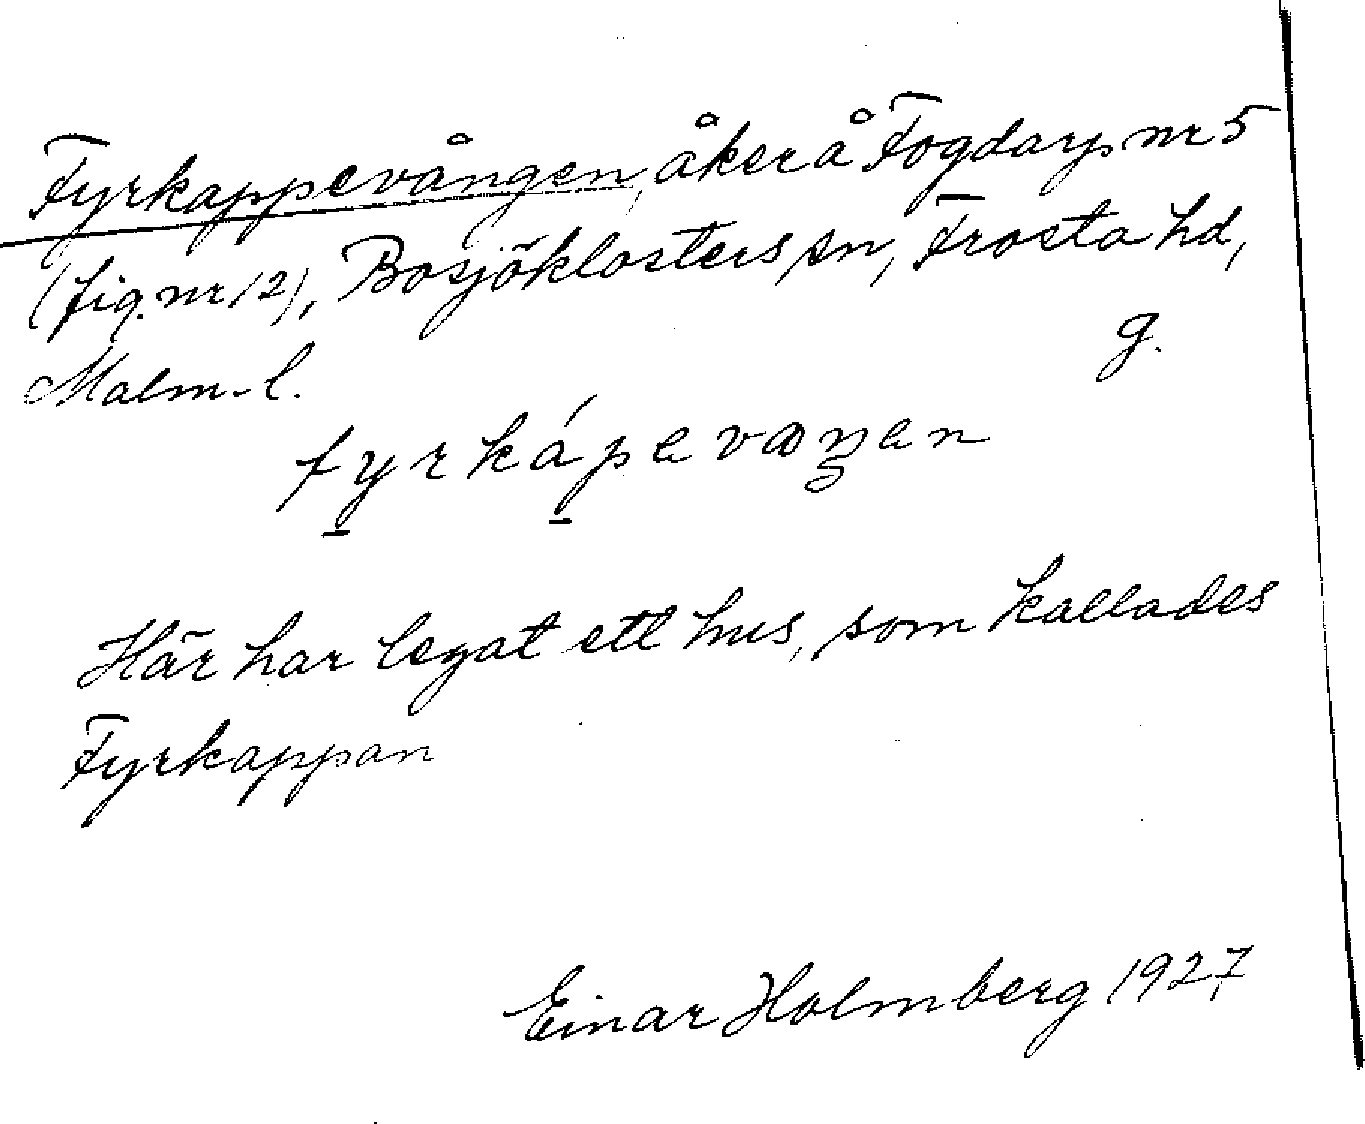 Fyrkappevången, åker å Fogdarp nr 5
(fig. nr 12), Bosjöklosters sn, Frosta hd,
Malm-l.
g.
fyrkápevaŋen
Här har legat ett hus, som kallades
Fyrkappan
Einar Holmberg 1927